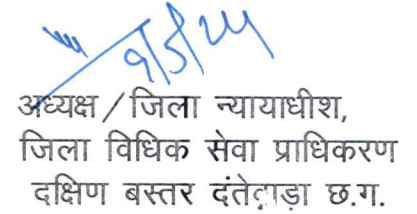 अध्यक्ष / जिला न्यायाधीश,
जिला विधिक सेवा प्राधिकरण
दक्षिण बस्तर दंतेवाड़ा छ.ग.